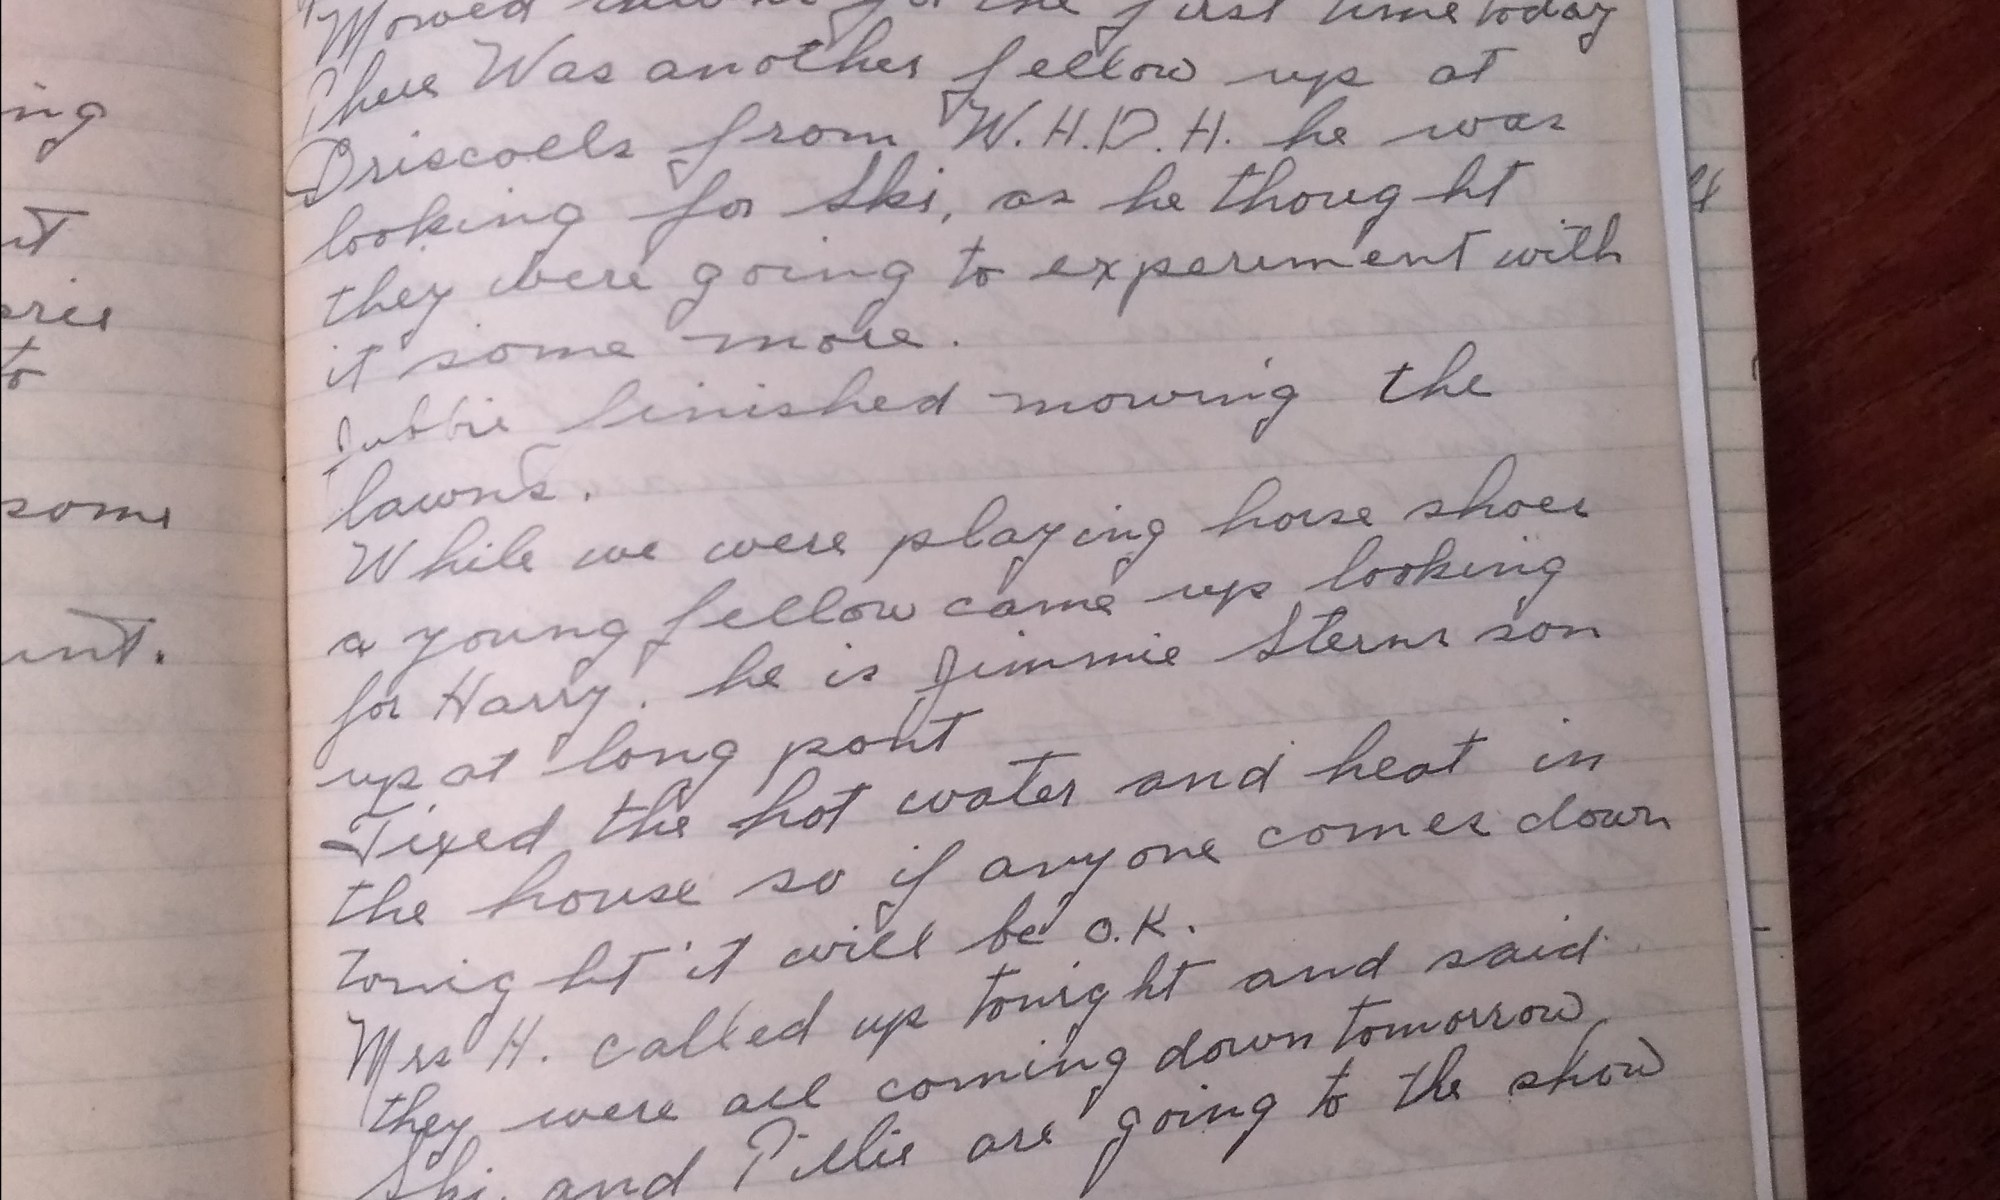 ing
it
to
some
Mowed for the first time today
There Was another fellow up at
Driscolls from W.H.D.H. he was
looking for Ski, as he thought
they were going to experiment with
it some more.
finished mowing the
lawns.
While we were playing horse shoes
a young fellow came up looking
for Harry. he is Jimmie Sterns son
up at long pont
Fixed the hot water and heat in
the house so if anyone comes down
tonight it will be O.K.
Mrs H. called up tonight and said
they were all coming down tomorrow
Ski, and Tillie are going to the show